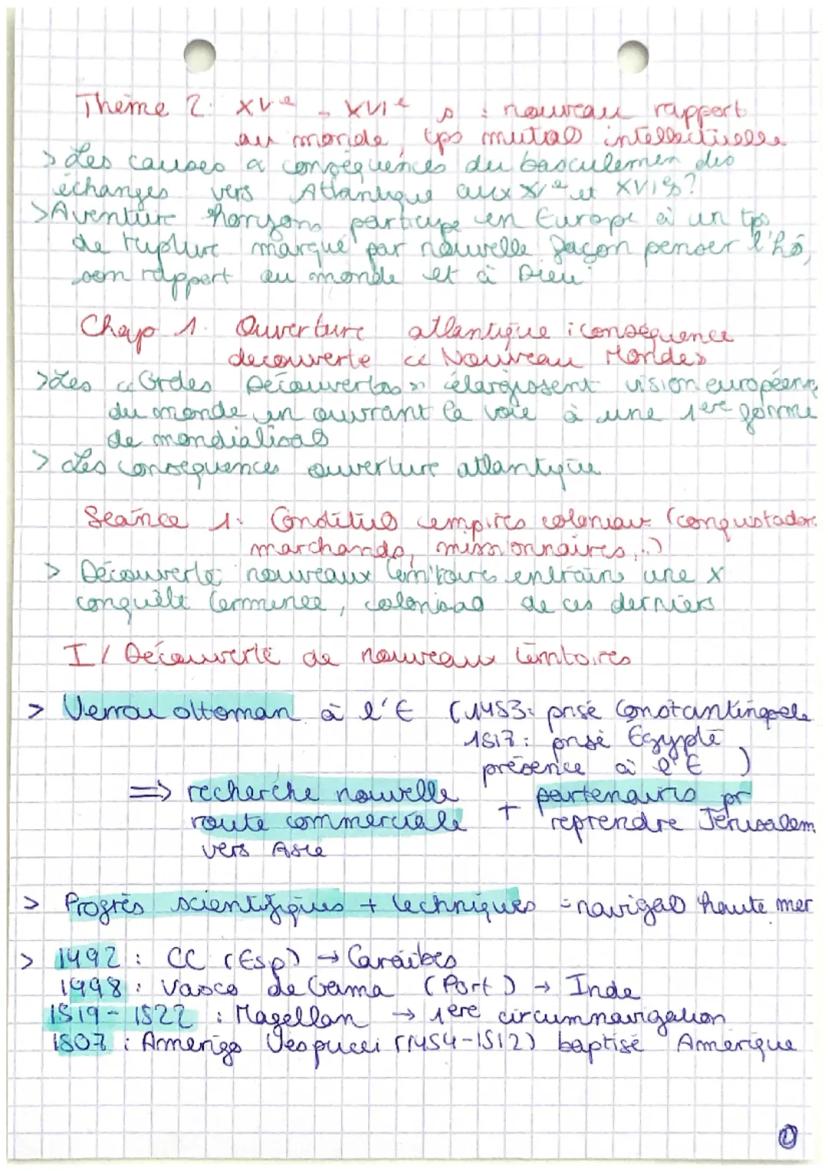 Thème 2 : XVe - XVIe s : nouveau rapport
au monde, tps mutato intellectuelle
> Les causes & conséquences du basculemen des
échanges vers Atlantique aux XVe et XVIe s ?
> Aventure horizons participe en Europe à un tps
de rupture marqué par nouvelle façon penser l'hô,
son rapport au monde et à Dieu
Chap 1. Ouverture atlantique : conséquence
decouverte « Nouveau Monde »
> Les « Grdes Découvertes » élargissent vision européenne
du monde en ouvrant la voie à une 1ere forme
de mondialisao
> Les conséquences ouverture atlantique
Séance 1 : Constituo empires coloniaux (conquistador
marchands, missionnaires,..)
> Découverte nouveaux territoires entraîne une X
conquête terminée, colonisao de ces derniers
I / Découverte de nouveaux territoires
> Verrou ottoman à l'E (1453 : prise Constantinople
1517 : prise Egypte
présence à l'E )
=> recherche nouvelle + partenaires pr
route commerciale reprendre Jérusalem
vers Asie
> Progrès scientifiques + techniques = navigao haute mer
> 1492 : CC (Esp) → Caraïbes
1998 : Vasco de Gama (Port) → Inde
1519 - 1522 : Magellan → 1ere circumnavigation
1507 : Amerigo Vespucci (1454-1512) baptise Amérique
1